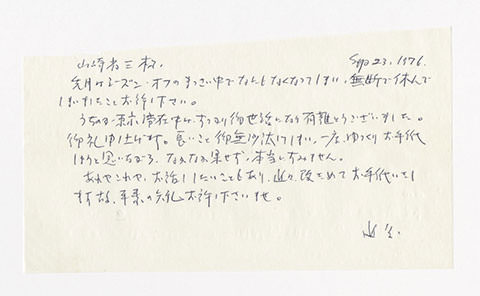 Sep 23, 1976.
先月はシーズン・オフのまっさい中でなんともなくなってしまい、無断で休んで
しまいましたことお許し下さい。
うちの 東京滞在中は、すっかり御世話になり有難とうございました。
御礼申上げます。長いこと御無沙汰してしまい、一度、ゆっくりお手紙
しようと思いながら、なかなか果せず、本当にすみません。
あれやこれや、お話ししたいこともあり、改めてお手紙いたし
ますが、平素の失礼お許し下さいませ。